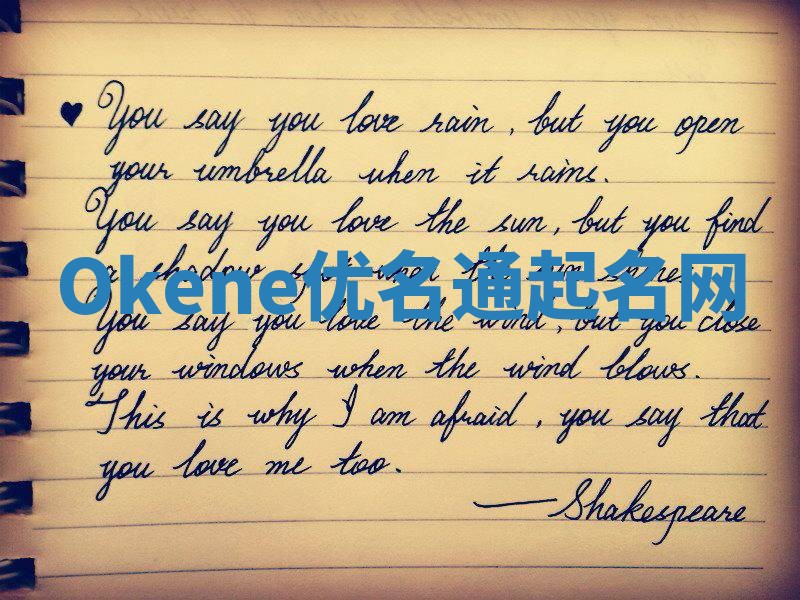 You say you love rain, but you open
your umbrella when it rains.
You say you love the sun, but you find
a shadow spot when the sun shines.
Okene优名通起名网
You say you love the wind, but you close
your windows when the wind blows.
This is why I am afraid, you say that
you love me too.
—Shakespeare